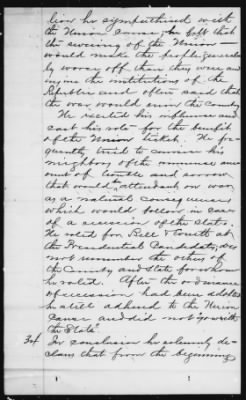 tion he sympathised with
the Union cause, he felt that
the severing of the Union
would make the people generally
by worse off than they were and
injure the institutions of the
Republic and often said that
the war would ruin the County
He exerted his influence and
cast his vote for the benefit
of the Union ticket. He fre-
quently tried to convince his
neighbors of the immense am-
ount of trouble and sorrow
that would be attendant on war,
as a natural consequence
which would follow in case
of a secession of the State.
He voted for Bell & Everett at
the Presidential Candidate, does
not remember the others of
the County and State for whom
he voted. After the ordinance
of secession had been adopted
he still adhered to the Union
cause and did not "go with
the State"
34 In conclusion he solemnly de-
clares that from the beginning